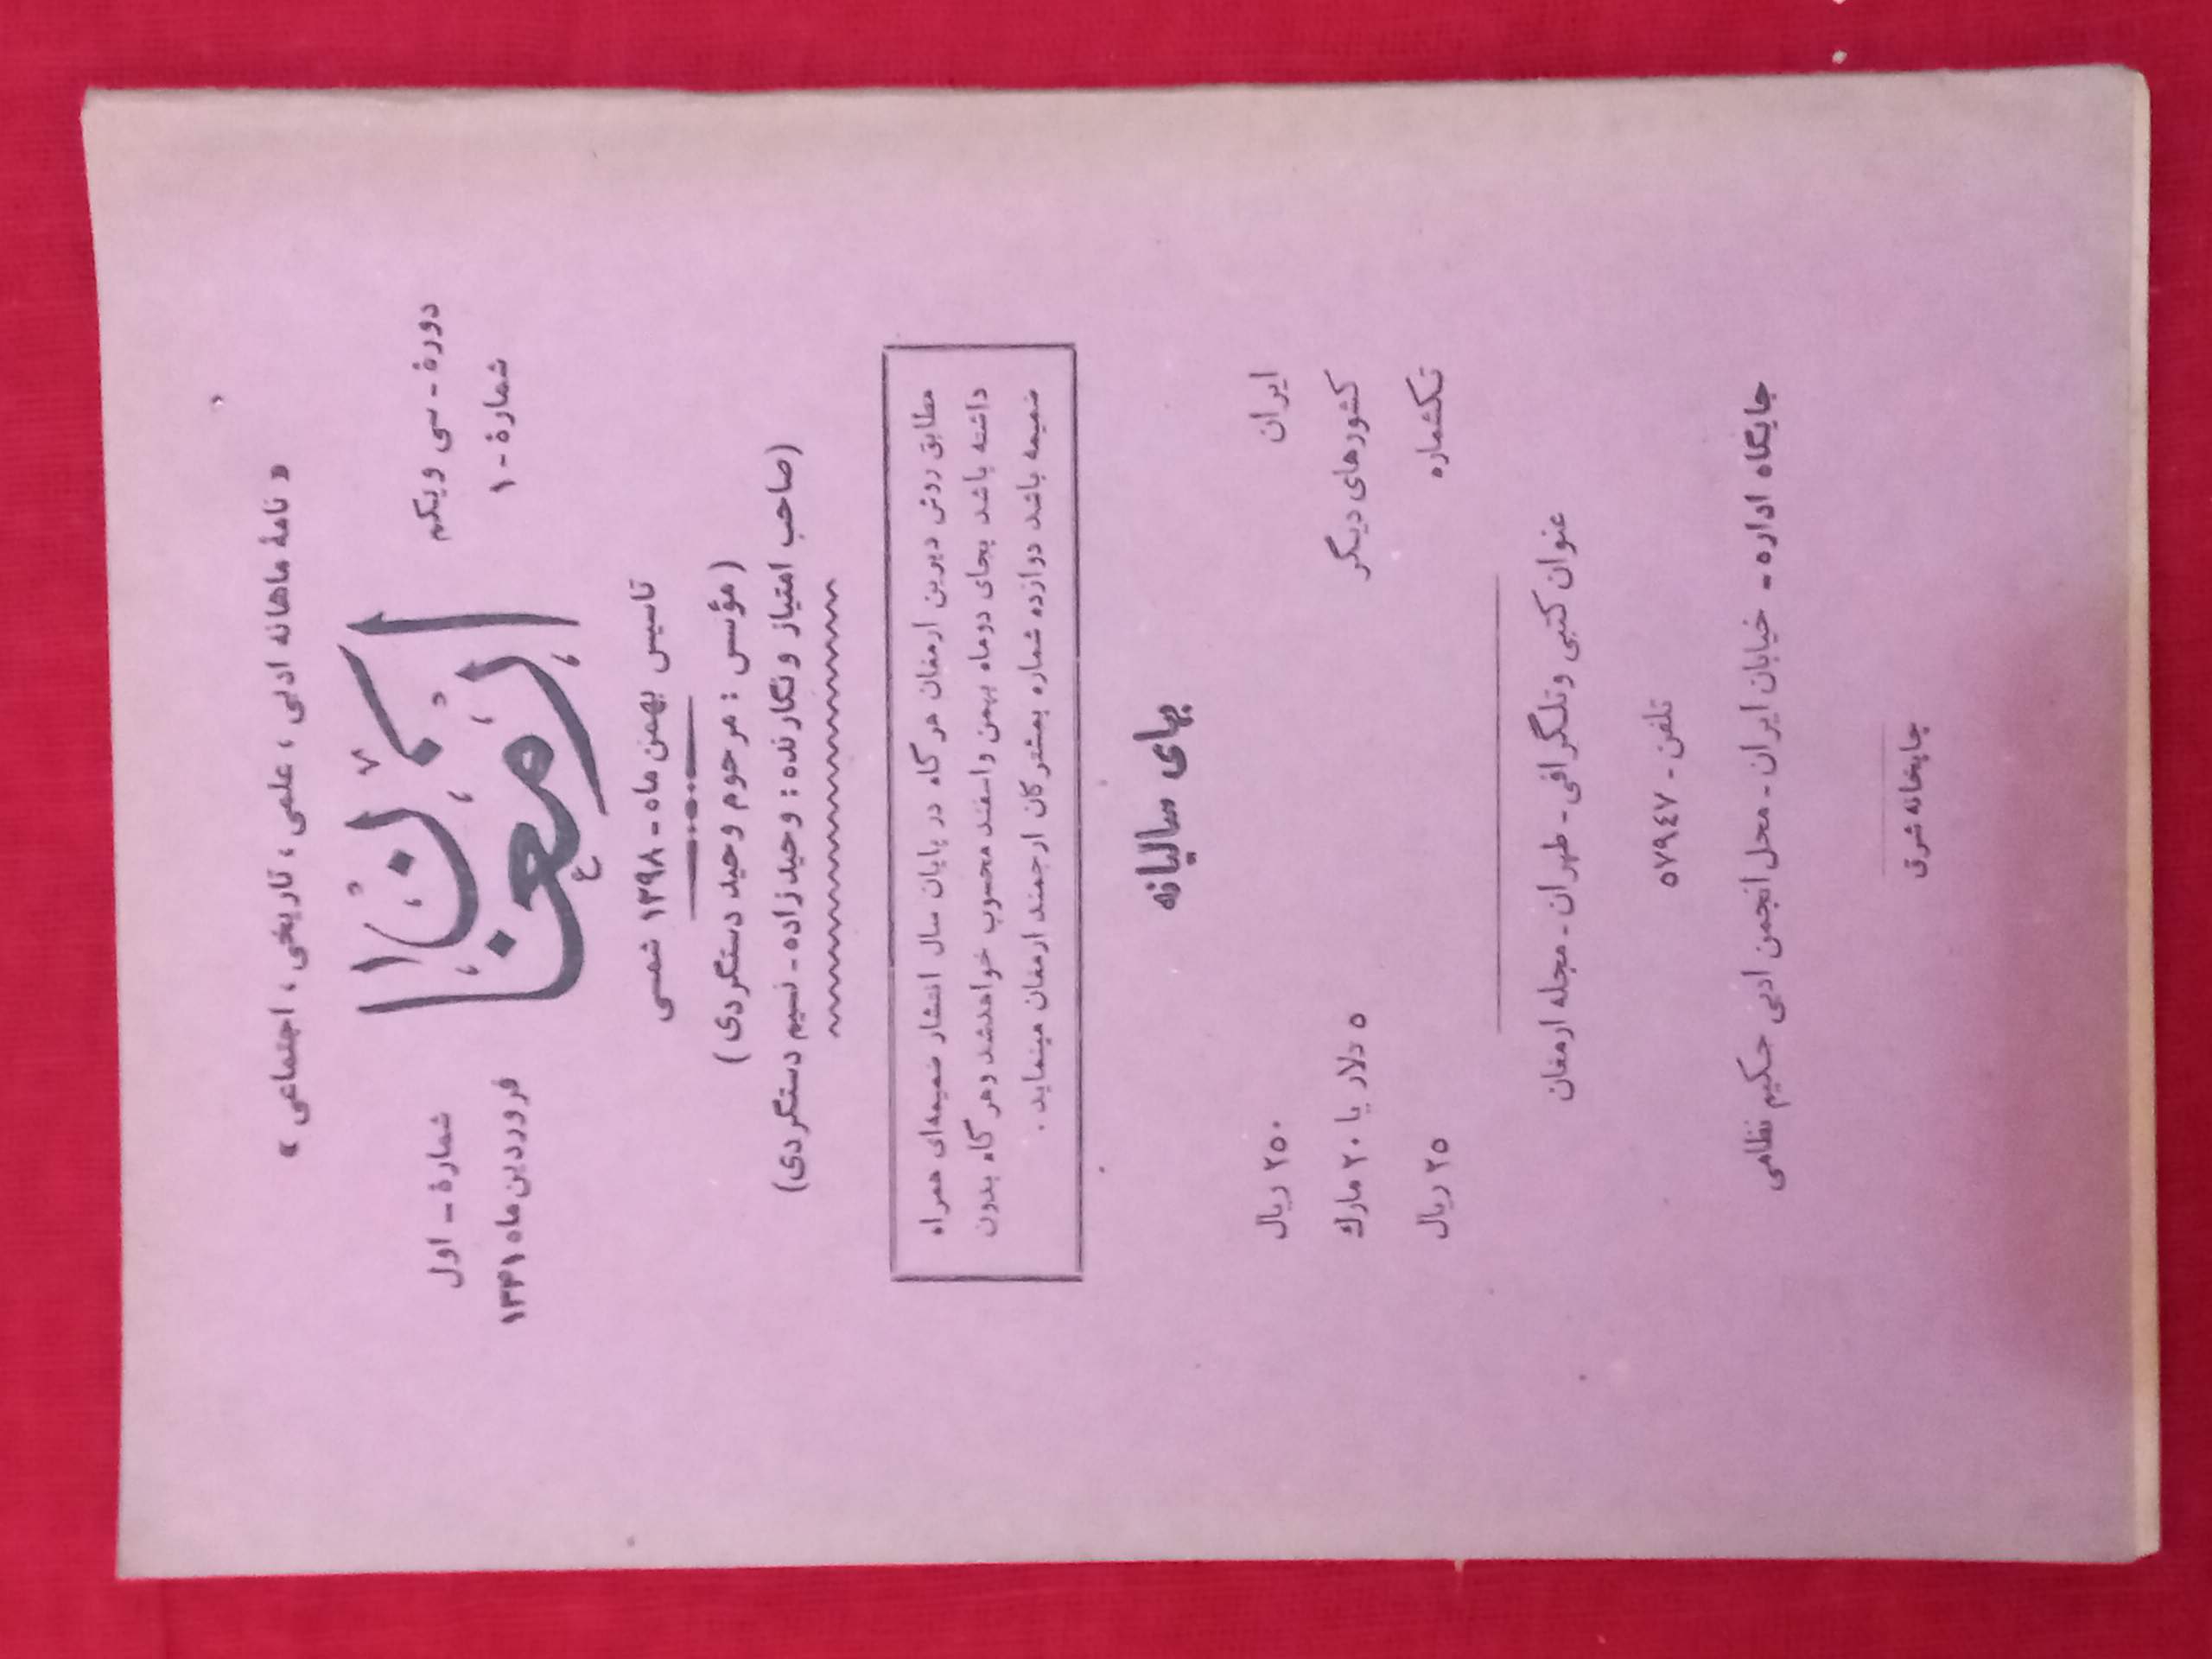 « نامهٔ ماهانه ادبی ، علمی ، تاریخی ، اجتماعی »
دورهٔ - سی و یکم
شمارهٔ - ۱
ارمغان
شمارهٔ - اول
فروردین ماه ۱۳۴۱
تاسیس بهمن ماه - ۱۲۹۸ شمسی
( مؤسس : مرحوم وحید دستگردی )
(صاحب امتیاز و نگارنده : وحیدزاده - نسیم دستگردی)
مطابق روش دیرین ارمغان هر گاه در پایان سال انتشار ضمیمه‌ای همراه
داشته باشد بجای دوماه بهمن واسفند محسوب خواهدشد وهر گاه بدون
ضمیمه باشد دوازده شماره بمشتر کان ارجمند ارمغان مینماید .
بهای سالیانه
ایران ۲۵۰ ریال
کشورهای دیگر ۵ دلار یا ۲۰ مارك
تکشماره ۲۵ ریال
عنوان کتبی وتلگرافی - طهران - مجله ارمغان
تلفن - ۵۷۹٤۷
جایگاه اداره - خیابان ایران - محل انجمن ادبی حکیم نظامی
چاپخانه شرق